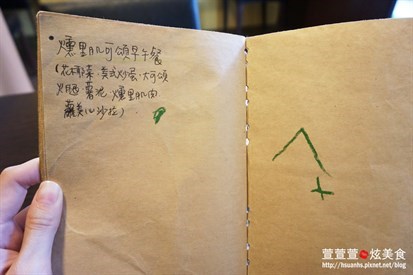 燻里肌可頌早午餐
(花椰菜、美式炒蛋、大可頌
火腿、薯泥、燻里肌肉
蘿美心沙拉)
萱萱萱 炫美食
http://hsuanhs.pixnet.net/blog